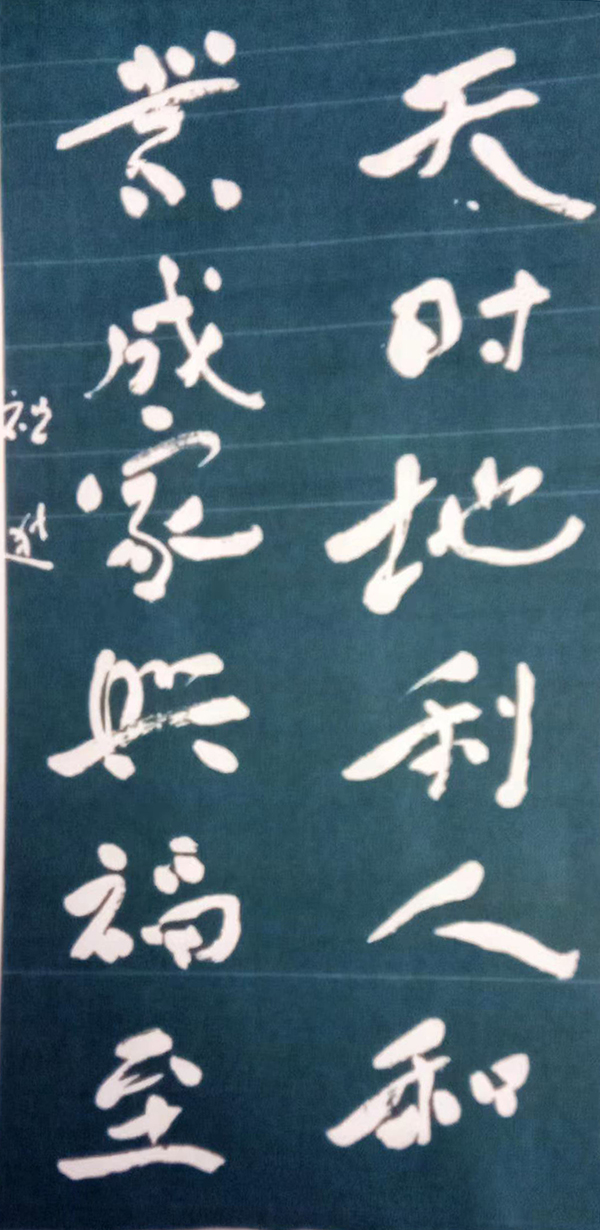 天时地利人和
業成家興福至